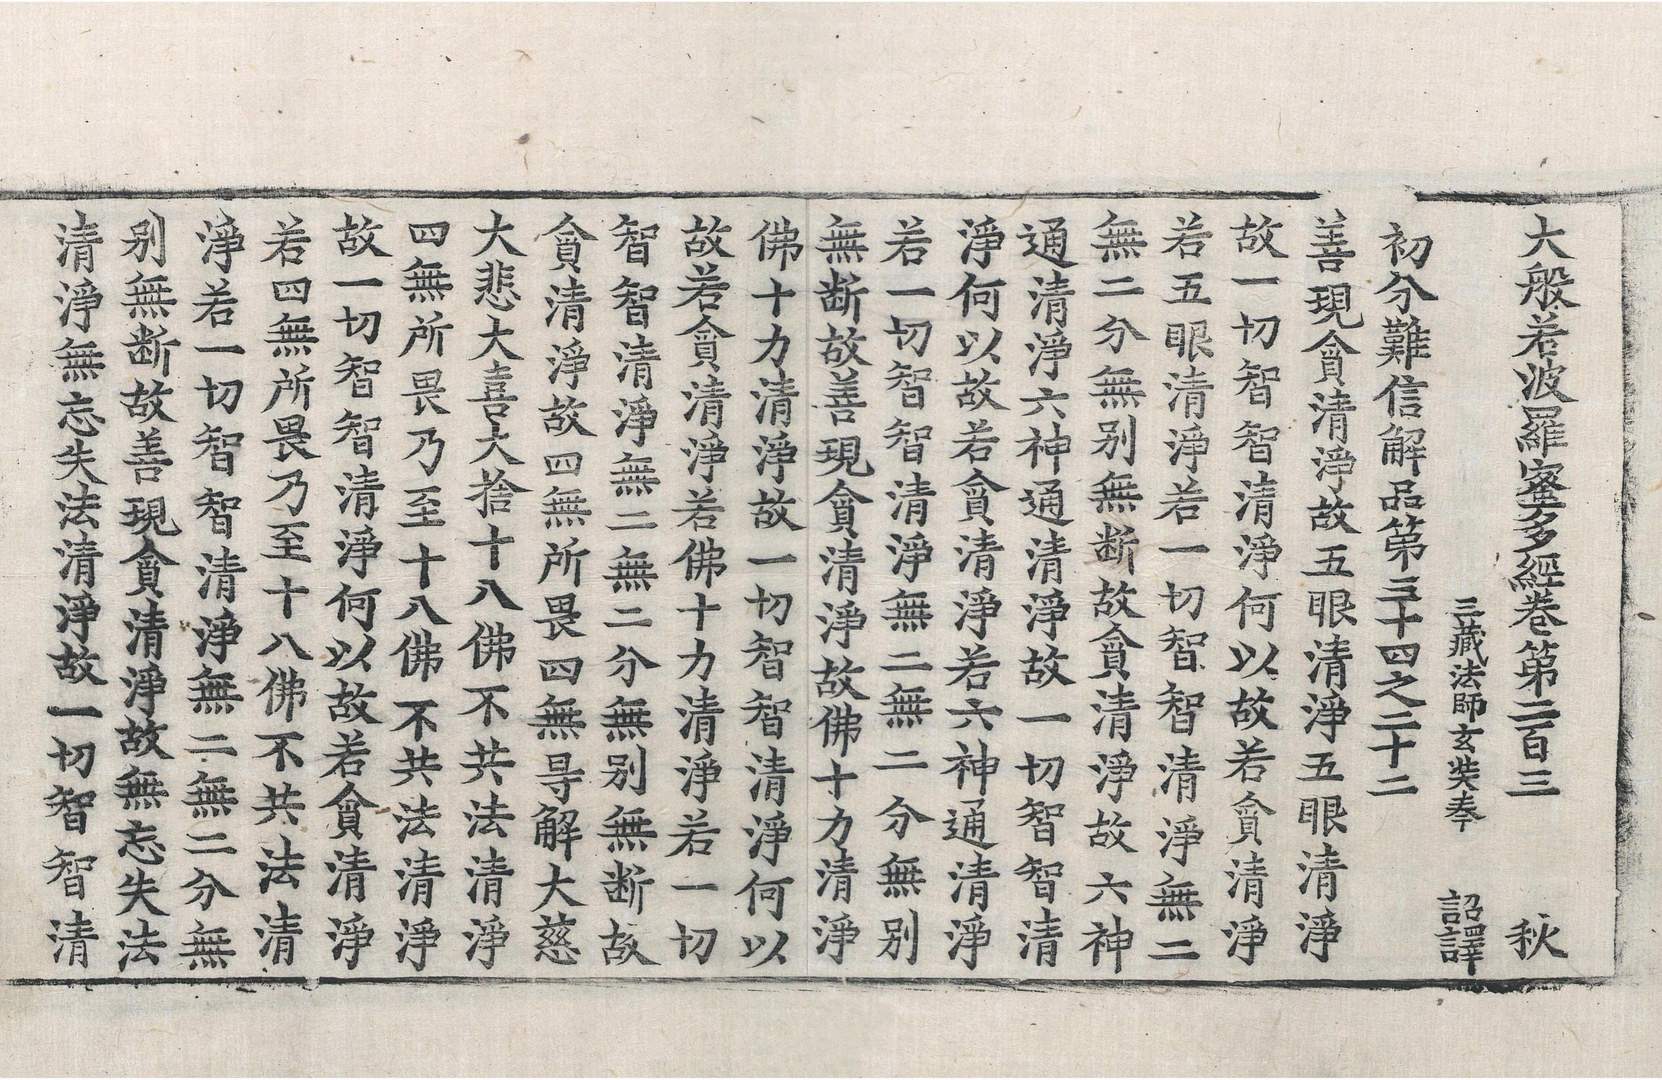 大般若波羅蜜多經卷第二百三 秋
三藏法師玄奘奉 詔譯
初分難信解品第三十四之二十二
善現貪清淨故五眼清淨五眼清淨
故一切智智清淨何以故若貪清淨
若五眼清淨若一切智智清淨無二
無二分無別無断故貪清淨故六神
通清淨六神通通清淨故一切智智清
淨何以故若貪清淨若六神通清淨
若一切智智清淨無二無二分無別
無断故善現貪清淨故佛十力清淨
佛十力清淨故一切智智清淨何以
故若貪清淨若佛十力清淨若一切
智智清淨無二無二分無別無断故
貪清淨故四無所畏四無㝵解大慈
大悲大喜大捨十八佛不共法清淨
四無所畏乃至十八佛不共法清淨
故一切智智清淨何以故若貪清淨
若四無所畏乃至十八佛不共法清
淨若一切智智清淨無二無二分無
別無断故善現貪清淨故無忘失法
清淨無忘失法清淨故一切智智清